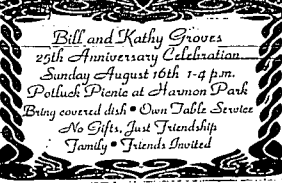 Bill and Kathy Groves
25th Anniversary Celebration
Sunday August 16th 1-4 p.m.
Potluck Picnic at Harmon Park
Bring covered dish • Own Table Service
No Gifts, Just Friendship
Family • Friends Invited